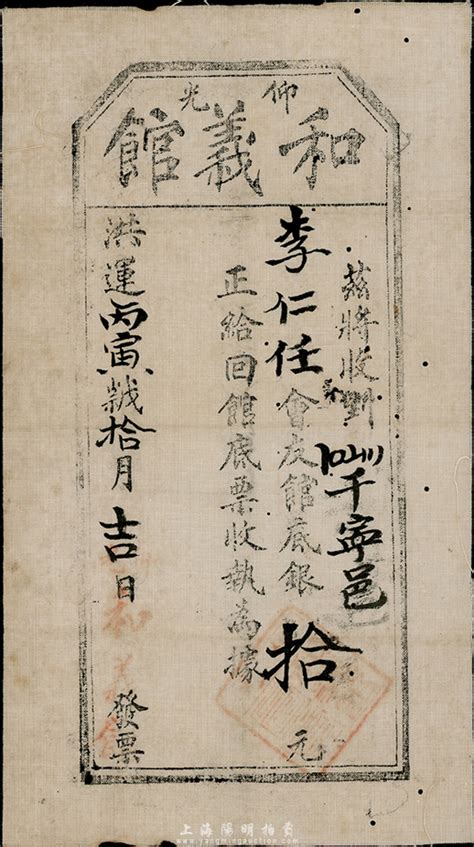 仰光
和義館
茲將收到千寧邑
李仁任會友館底銀拾元
正給回館底票收執為據
洪運丙寅歲拾月吉日發票
上海陽明拍賣
www.yangmingauction.com